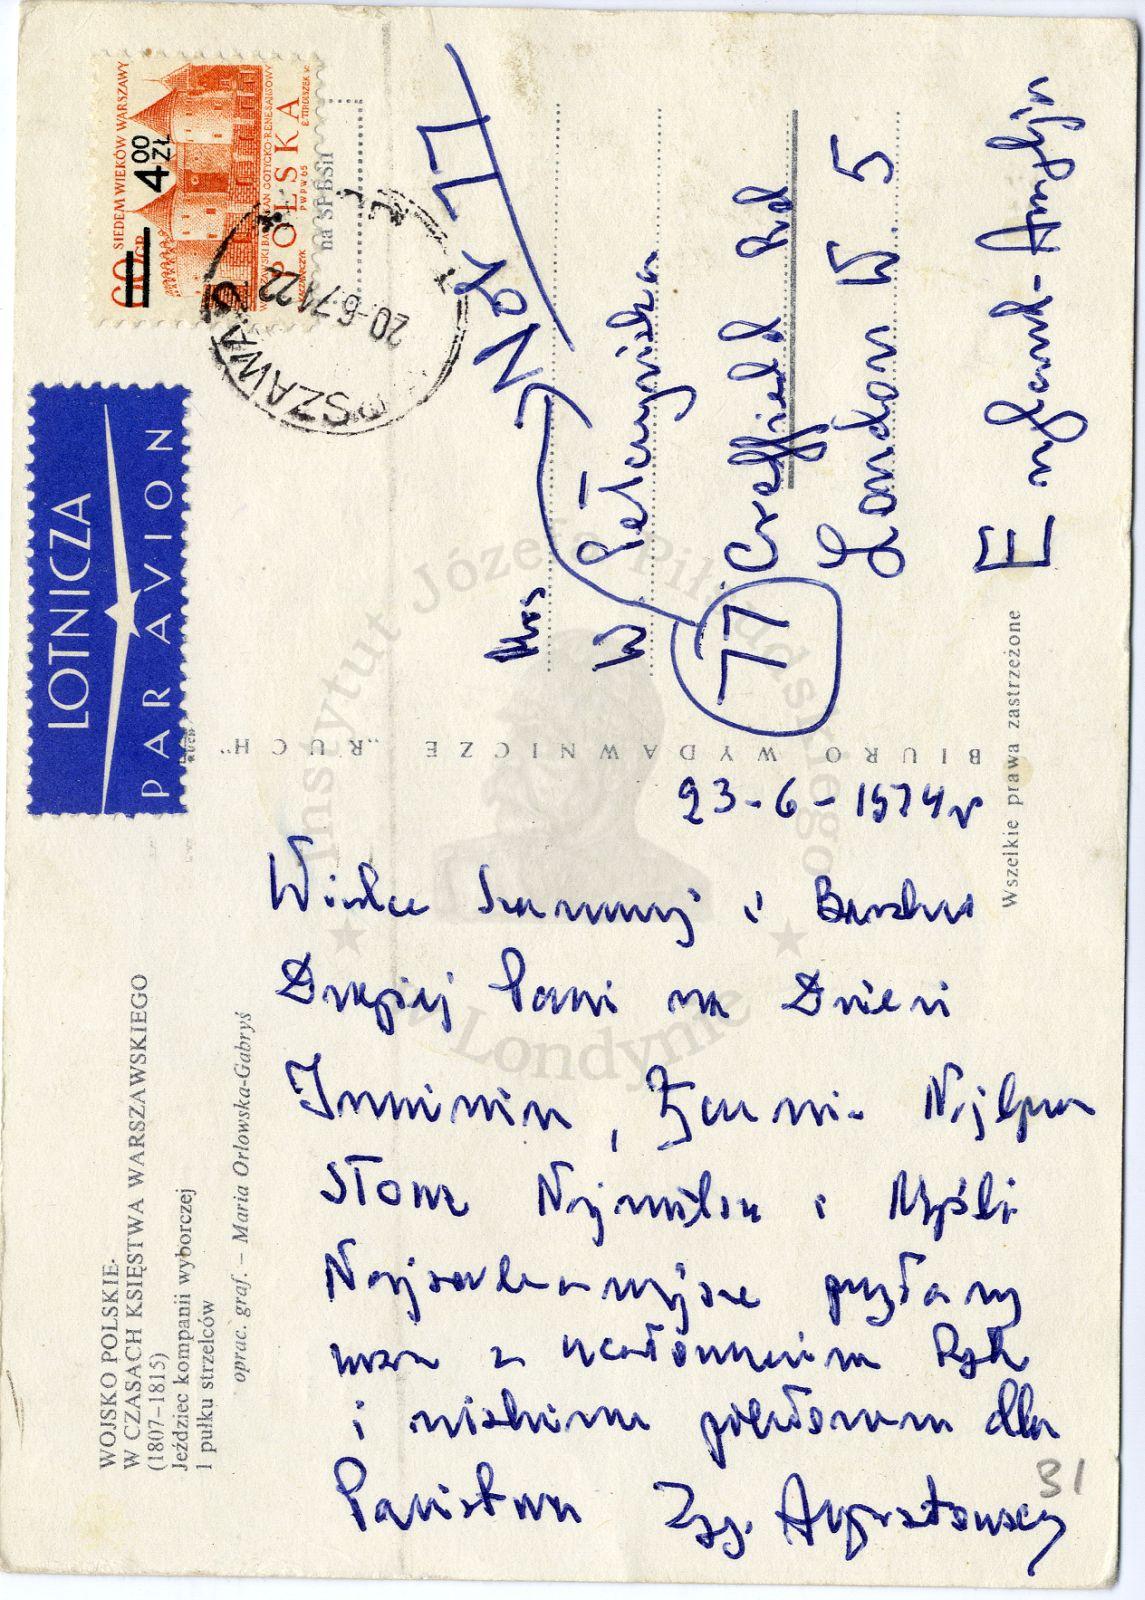 WOJSKO POLSKIE
W CZASACH KSIĘSTWA WARSZAWSKIEGO
(1807–1815)
Jeździec kompanii wyborczej
1 pułku strzelców
oprac. graf. – Maria Orłowska-Gabryś
LOTNICZA
PAR AVION
60GR SIEDEM WIEKÓW WARSZAWY
4 00 ZŁ
POLSKA
PWPW 65
na SPBSiI
20-6-74 22
BIURO WYDAWNICZE „RUCH”
Wszelkie prawa zastrzeżone
Instytut Józefa Piłsudskiego
w Londynie
23-6-1974 r
Wielce Szanownej i Bardzo
Drogiej Pani na Dzień
Imienin, Życzenia Najlepsze
Słowa Najmilsze i Myśli
Najserdeczniejsze przesłany
wraz z ucałowaniem Rąk
i niskim pokłonem dla
Państwa Zyg.
Not 77
Mrs
W. Pełczyńska
77 Creffield Rd
London W.5
England - Anglja
31